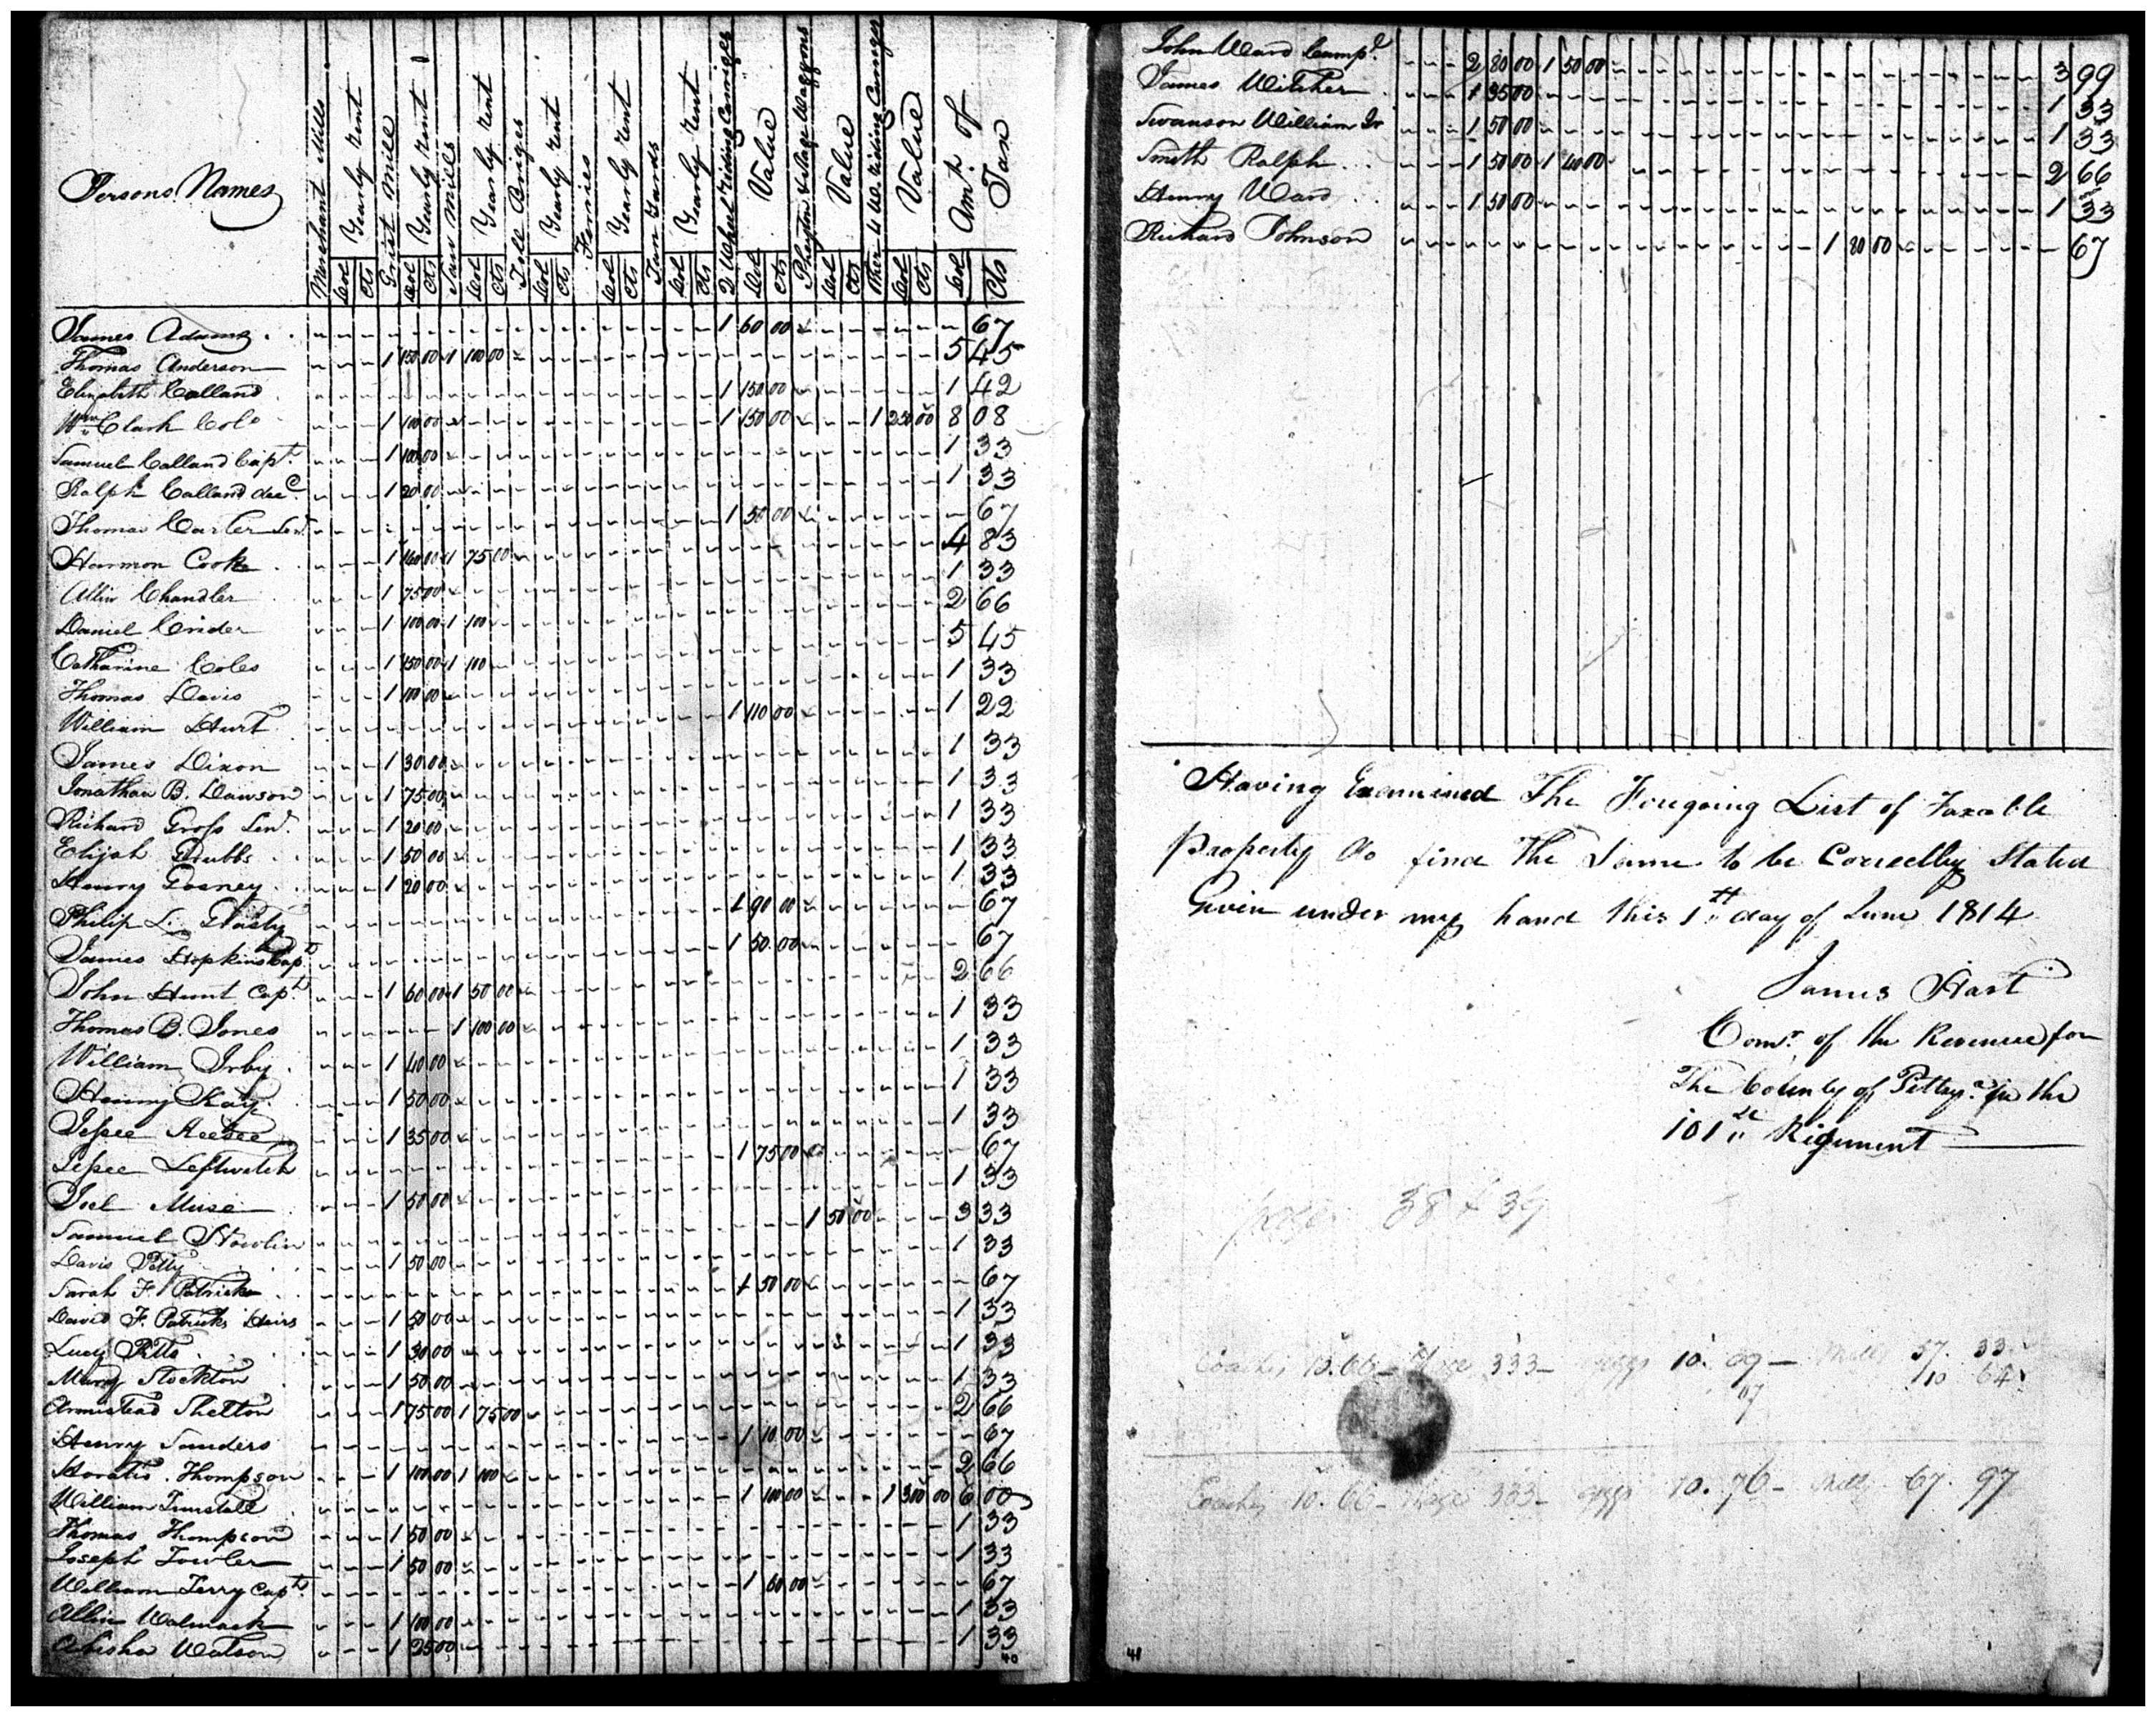 Persons Names
Merchant Mills
Yearly Rent
Grist Mill
Yearly Rent
Saw Mills
Yearly Rent
Toll Briges
Yearly Rent
Ferries
Yearly Rent
Tan Yards
Yearly Rent
2 Wheel riding Carriges
Value
Phaeton & Stage Waggons
Value
Other 4 W. riding Carriges
Value
Amt. of Tax
Dol Cts Dol Cts Dol Cts Dol Cts Dol Cts Dol Cts Dol Cts Dol Cts Dol Cts Dol Cts
James Adams 1 60 00 67
Thomas Anderson 1 150 00 1 100 00 5 45
Elizabeth Calland 1 150 00 1 42
Wm Clark Colo 1 100 00 1 150 00 1 250 00 8 08
Samuel Calland Capt. 1 100 00 1 33
Ralph Calland decd. 1 20 00 1 33
Thomas Carter Senr. 1 50 00 67
Harmon Cook 1 160 00 1 75 00 4 83
Allin Chandler 1 75 00 1 33
Daniel Crider 1 100 00 1 100 2 66
Catharine Coles 1 150 00 1 100 5 45
Thomas Davis 1 100 00 1 33
William Hurt 1 110 00 1 22
James Dixon 1 30 00 1 33
Jonathan B. Dawson 1 75 00 1 33
Richard Gross Senr. 1 20 00 1 33
Elijah Grubbs 1 50 00 1 33
Henry Gosney 1 20 00 1 33
Philip L. 1 90 00 67
James Hopkins Capt 1 50 00 67
John Hunt Capt. 1 60 00 1 50 00 2 66
Thomas B. Jones 1 100 00 1 33
William Irby 1 40 00 1 33
Henry Kay 1 50 00 1 33
Jessee Keesee 1 35 00 1 33
Jessee Leftwitch 1 75 00 67
Joel Muse 1 50 00 1 33
Samuel Nowlin 1 50 00 3 33
Davis Petty 1 50 00 1 33
Sarah F. Patrick 1 50 00 67
David F. Patricks Heirs 1 50 00 1 33
Lucy Pitts 1 30 00 1 33
Mary Stockton 1 50 00 1 33
Armistead Shelton 1 75 00 1 75 00 2 66
Henry Sanders 1 10 00 67
Horatio Thompson 1 100 00 1 100 2 66
William Tunstall 1 100 00 1 300 00 6 00
Thomas Thompson 1 50 00 1 33
Joseph Towler 1 50 00 1 33
William Terry Capt. 1 60 00 67
Allin Walmack 1 100 00 1 33
Abisha Watson 1 25 00 1 33
40
John Ward Campl. 2 80 00 1 50 00 3 99
James Witcher 1 35 00 1 33
Swanson William Jr 1 50 00 1 33
Smith Ralph 1 50 00 1 40 00 2 66
Henry Ward 1 50 00 1 33
Richard Johnson 1 80 00 67
Having Examined The Foregoing List of Taxable
Property do find The Same to be Correctly Stated
Given under my hand this 1st day of June 1814
James Hart
Comr. of the Revenue for
The County of Pittsya. in the
101st Regiment
pages 38 & 39
Coaches 10.66 - Stage 333 - giggs 10. 09 - Mills 57. 33
67 10 64
Coaches 10.66 - Stage 333 - giggs 10. 76 - Mills 67. 97
40